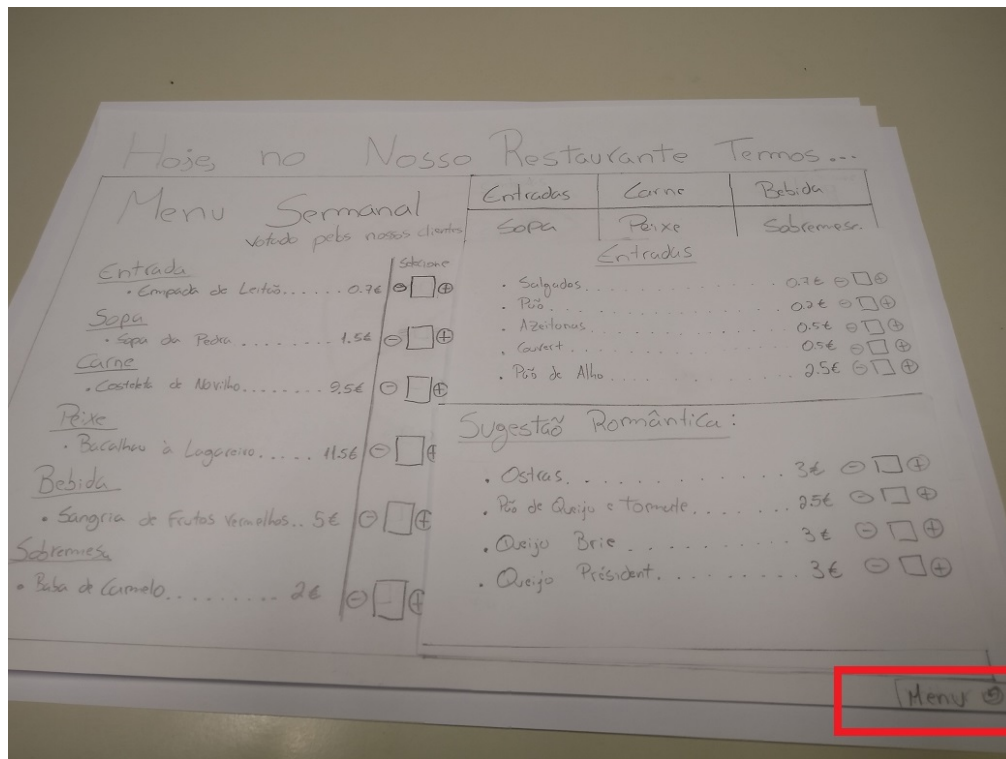 Hoje, no Nosso Restaurante Temos...
Menu Semanal
votado pelos nossos clientes
Selecione
Entrada
• Empada de Leitão...... 0.7€
Sopa
• Sopa da Pedra......... 1.5€
Carne
• Costeleta de Novilho........ 9,5€
Peixe
• Bacalhau à Lagareiro..... 11.5€
Bebida
• Sangria de Frutos Vermelhos.. 5€
Sobremesa
• Baba de Camelo.......... 2€
Entradas Carne Bebida
Sopa Peixe Sobremesa
Entradas
• Salgados............... 0.7€
• Pão
• Azeitonas............... 0.5€
• Couvert............... 0.5€
• Pão de Alho............ 2.5€
Sugestão Romântica:
• Ostras............. 3€
• Pão de Queijo e Tomate........ 2.5€
• Queijo Brie............ 3€
• Queijo Président.......... 3€
Menu